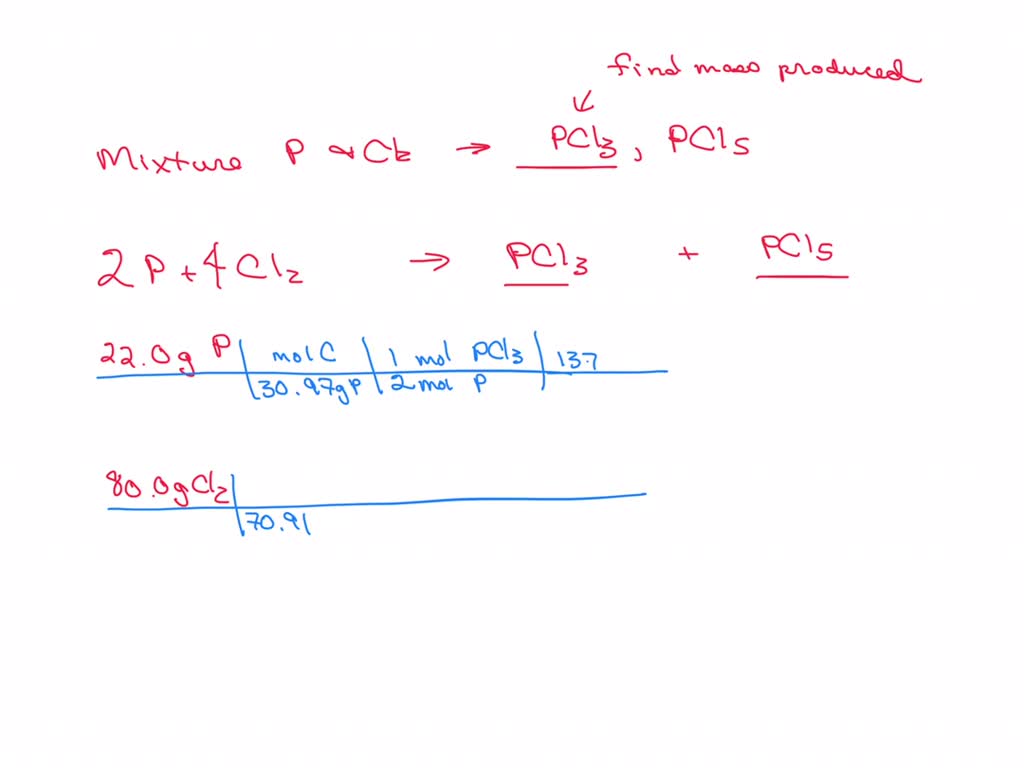 find mass produced
↙
Mixture P & Cl2 → PCl3, PCl5
2 P + 4 Cl2 → PCl3 + PCl5
22.0g P | mol C | 1 mol PCl3 | 137
30.97g P | 2 mol P
80.0g Cl2
70.91